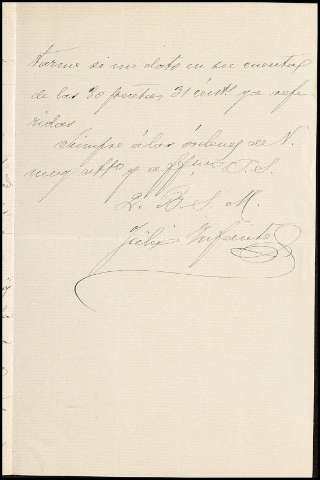 tarme si me dats en su cuenta
de las 20 pesetas 31 cénts ya refe
ridas
Siempre á las órdenes de V.
muy atto y affmo S.S.
Q. B. S. M.
Felix Infante